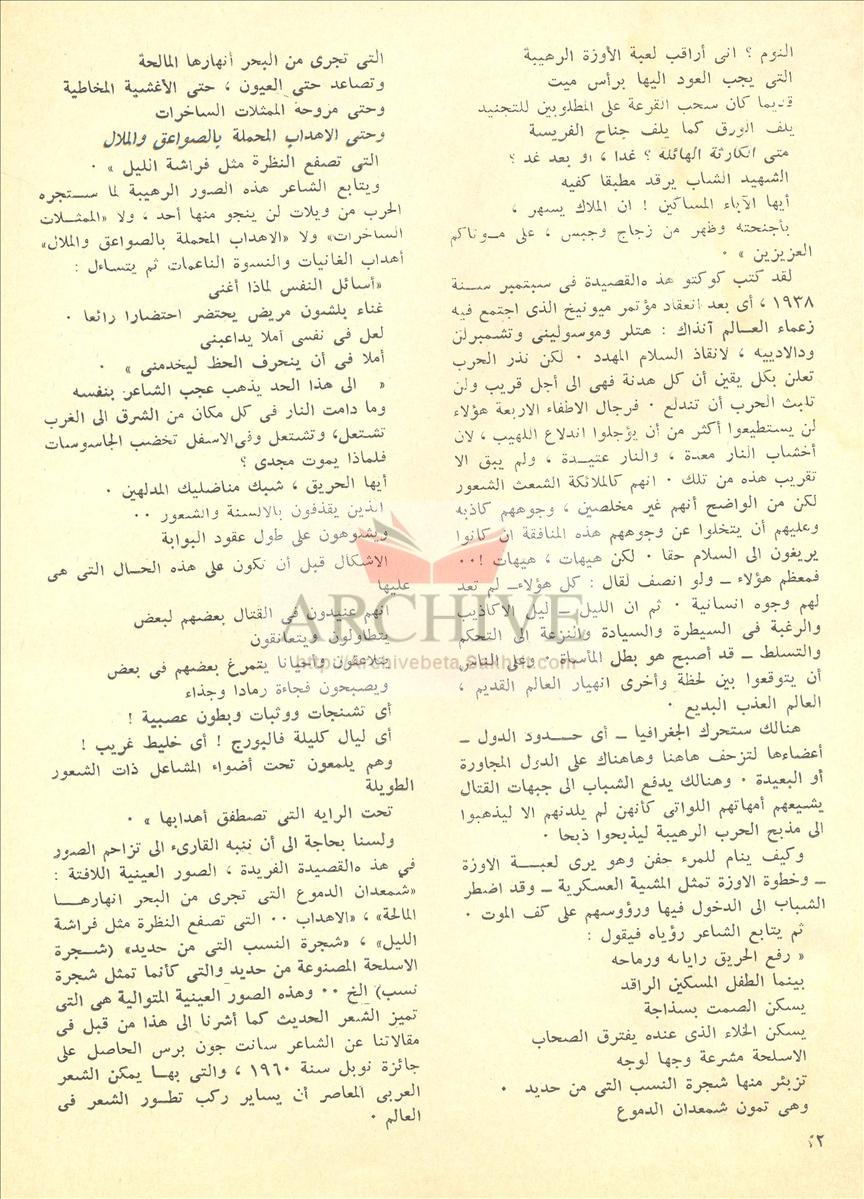 النوم ؟ انى أراقب لعبة الأوزة الرهيبة
التى يجب العود اليها برأس ميت
قديما كان سحب القرعة على المطلوبين للتجنيد
يلف الورق كما يلف جناح الفريسة
متى الكارثة الهائلة ؟ غدا ، او بعد غد ؟
الشهيد الشاب يرقد مطبقا كفيه
أيها الآباء المساكين ! ان الملاك يسهر ،
بأجنحته وظهر من زجاج وجبس ، على موتاكم
العزيزين » ٠
لقد كتب كوكتو هذه القصيدة فى سبتمبر سنة
١٩٣٨ ، أى بعد انعقاد مؤتمر ميونيخ الذى اجتمع فيه
زعماء العالم آنذاك : هتلر وموسولينى وتشمبرلن
ودالادييه ، لانقاذ السلام المهدد ٠ لكن نذر الحرب
تعلن بكل يقين أن كل هدنة فهى الى أجل قريب ولن
تلبث الحرب أن تندلع ٠ فرجال الاطفاء الاربعة هؤلاء
لن يستطيعوا أكثر من أن يؤجلوا اندلاع اللهيب ، لان
أخشاب النار معدة ، والنار عتيدة ، ولم يبق الا
تقريب هذه من تلك ٠ انهم كالملائكة الشعث الشعور
لكن من الواضح أنهم غير مخلصين ، وجوههم كاذبه
وعليهم أن يتخلوا عن وجوههم هذه المنافقة ان كانوا
يريغون الى السلام حقا ٠ لكن هيهات ، هيهات !٠٠
فمعظم هؤلاء ــ ولو انصف لقال : كل هؤلاءــ لم تعد
لهم وجوه انسانية ٠ ثم ان الليل ــ ليل الاكاذيب
والرغبة فى السيطرة والسيادة والنزعة الى التحكم
والتسلط ــ قد أصبح هو بطل المأساة ٠ وعلى الناس
أن يتوقعوا بين لحظة وأخرى انهيار العالم القديم ،
العالم العذب البديع ٠
هنالك ستحرك الجغرافيا ــ أى حدود الدول ــ
أعضاءها لتزحف هاهنا وهاهناك على الدول المجاورة
أو البعيدة ٠ وهنالك يدفع الشباب الى جبهات القتال
يشيعهم أمهاتهم اللواتى كأنهن لم يلدنهم الا ليذهبوا
الى مذبح الحرب الرهيبة ليذبحوا ذبحا ٠
وكيف ينام للمرء جفن وهو يرى لعبة الاوزة
ــ وخطوة الاوزة تمثل المشية العسكرية ــ وقد اضطر
الشباب الى الدخول فيها ورؤوسهم على كف الموت ٠
ثم يتابع الشاعر رؤياه فيقول :
« رفع الحريق راياته ورماحه
بينما الطفل المسكين الراقد
يسكن الصمت بسذاجة
يسكن الخلاء الذى عنده يفترق الصحاب
الاسلحة مشرعة وجها لوجه
تزبئر منها شجرة النسب التى من حديد ٠
وهى تمون شمعدان الدموع
التى تجرى من البحر أنهارها المالحة
وتصاعد حتى العيون ، حتى الأغشية المخاطية
وحتى مروحة الممثلات الساخرات
وحتى الاهداب المحملة بالصواعق والملال
التى تصفع النظرة مثل فراشة الليل » ٠
ويتابع الشاعر هذه الصور الرهيبة لما ستجره
الحرب من ويلات لن ينجو منها أحد ، ولا «الممثلات
الساخرات» ولا «الاهداب المحملة بالصواعق والملال»
أهداب الغانيات والنسوة الناعمات ثم يتساءل :
«أسائل النفس لماذا أغنى
غناء بلشون مريض يحتضر احتضارا رائعا ٠
لعل فى نفسى أملا يداعبنى
أملا فى أن ينحرف الحظ ليخدمنى » ٠
« الى هذا الحد يذهب عجب الشاعر بنفسه
وما دامت النار فى كل مكان من الشرق الى الغرب
تشتعل، وتشتعل وفى الاسفل تخضب الجاسوسات
فلماذا يموت مجدى ؟
أيها الحريق ، شبك مناضليك المدلهين ٠
الذين يقذفون بالالسنة والشعور ٠٠
ويشوهون على طول عقود البوابة
الاشكال قبل أن تكون على هذه الحال التى هى
عليها
انهم عنيدون فى القتال بعضهم لبعض
يتطاولون ويتعانقون
يتلاعقون وأحيانا يتمرغ بعضهم فى بعض
ويصبحون فجاءة رمادا وجذاء
أى تشنجات ووثبات وبطون عصبية !
أى ليال كليلة فالبورج ! أى خليط غريب !
وهم يلمعون تحت أضواء المشاعل ذات الشعور
الطويلة
تحت الرايه التى تصطفق أهدابها » ٠
ولسنا بحاجة الى أن ننبه القارىء الى تزاحم الصور
فى هذه القصيدة الفريدة ، الصور العينية اللافتة :
«شمعدان الدموع التى تجرى من البحر انهارها
المالحة» ، «الاهداب ٠٠ التى تصفع النظرة مثل فراشة
الليل» ، «شجرة النسب التى من حديد» (شجرة
الاسلحة المصنوعة من حديد والتى كأنما تمثل شجرة
نسب) الخ ٠٠ وهذه الصور العينية المتوالية هى التى
تميز الشعر الحديث كما أشرنا الى هذا من قبل فى
مقالاتنا عن الشاعر سانت جون برس الحاصل على
جائزة نوبل سنة ١٩٦٠ ، والتى بها يمكن الشعر
العربى المعاصر أن يساير ركب تطور الشعر فى
العالم ٠
ARCHIVE
http://Archivebeta.Sakhrit.com